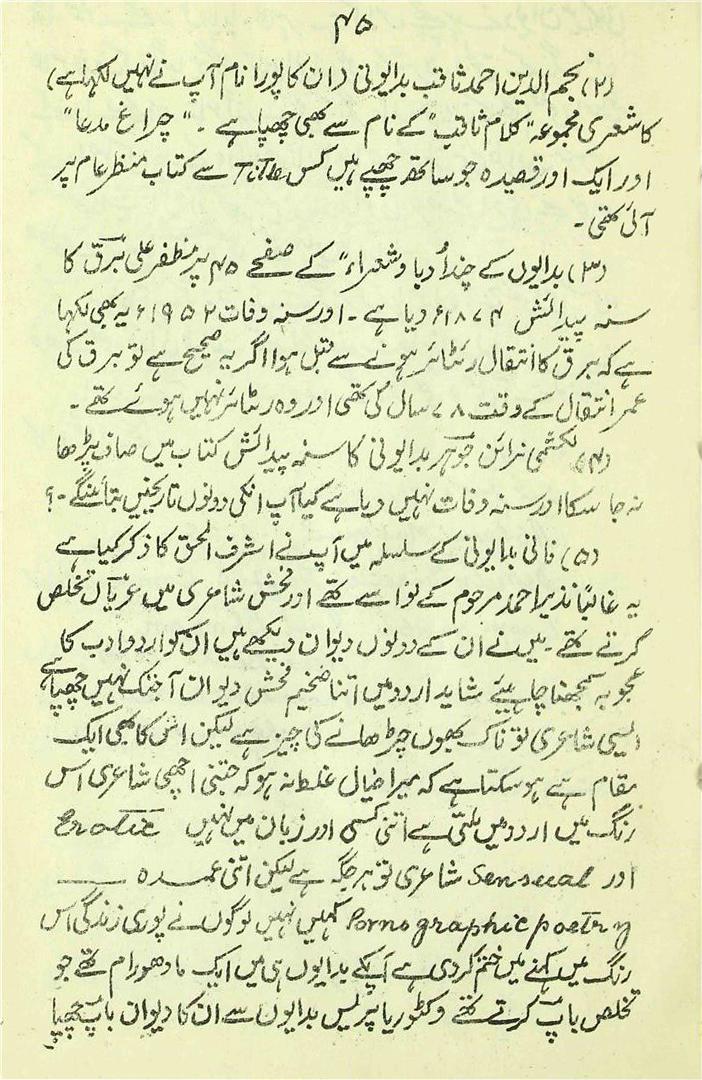 ۴۵
(۲) نجم الدین احمد ثاقب بدایونی (ان کا پورا نام آپ نے نہیں لکھا ہے)
کا شعری مجموعہ "کلام ثاقب" کے نام سے بھی چھپا ہے ۔ "چراغ مدعا"
اور ایک اور قصیدہ جو ساتھ چھپے ہیں کس Title سے کتاب منظر عام پر
آئی تھی ۔
(۳) بدایوں کے چند اُدبا و شعراء" کے صفحے ۴۵ پر منظفر علی برق کا
سنہ پیدائش ۱۸۷۴ء دیا ہے ۔ اور سنہ وفات ۱۹۵۲ء یہ بھی لکھا
ہے کہ برق کا انتقال رئٹائر ہونے سے قبل ہوا اگر یہ صحیح ہے تو برق کی
عمر انتقال کے وقت ۷۸ سال کی تھی اور وہ رٹائر نہیں ہوئے تھے ۔
(۴) لکشمی نرائن جوہر بدایونی کا سنہ پیدائش کتاب میں صاف پڑھا
نہ جا سکا اور سنہ وفات نہیں دیا ہے کیا آپ انکی دونوں تاریخیں بتائینگے ۔؟
(۵) فانی بدایونی کے سلسلہ میں آپ نے اشرف الحق کا ذکر کیا ہے
یہ غالباً نذیر احمد مرحوم کے نواسے تھے اور فحش شاعری میں عریاں تخلص
کرتے تھے ۔ میں نے ان کے دونوں دیوان دیکھے ہیں ان کو اردو ادب کا
عجوبہ سمجھنا چاہیئے شاید اردو میں اتنا ضخیم فحش دیوان آجتک نہیں چھپا ہے
ایسی شاعری تو ناک بھوں چڑھانے کی چیز ہے لیکن اس کا بھی ایک
مقام ہے ہو سکتا ہے کہ میرا خیال غلط نہ ہو کہ جتنی اچھی شاعری اس
رنگ میں اردو میں ملتی ہے اتنی کسی اور زبان میں نہیں Erotic
اور Sensual شاعری تو ہر جگہ ہے لیکن اتنی عمدہ
Pornographic poetry کہیں نہیں لوگوں نے پوری زندگی اس
رنگ میں کہنے میں ختم کر دی ہے آپکے بدایوں ہی میں ایک مادھورام تھے جو
تخلص باپ کرتے تھے وکٹوریا پریس بدایوں سے ان کا دیوان باپ چھپا